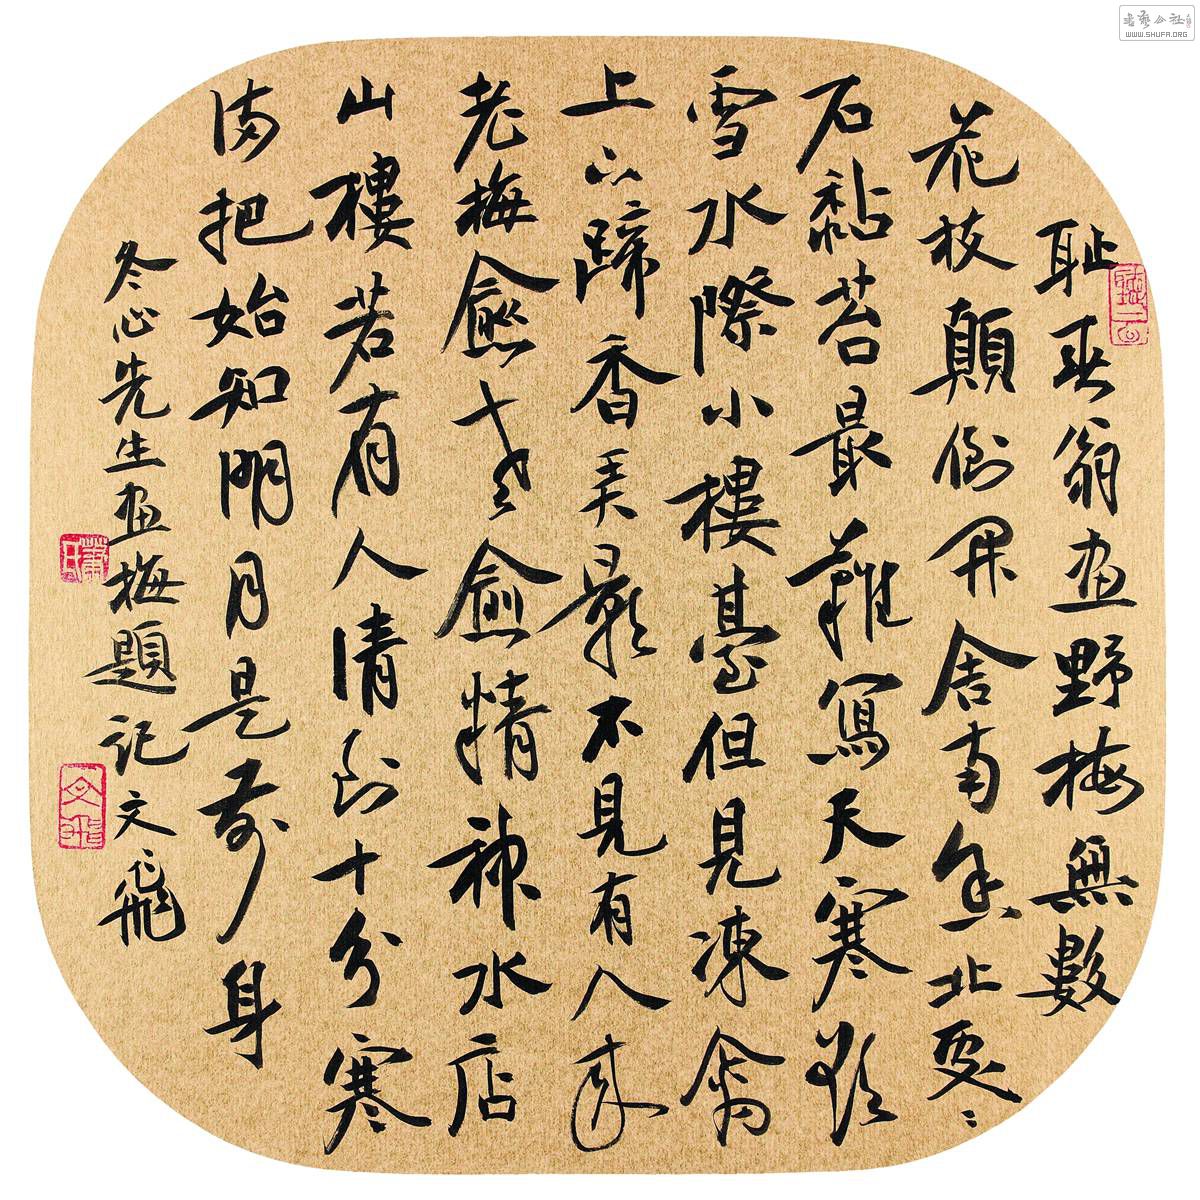 耻春翁画野梅無數
花枝顛倒開舍南舍北處〻
石黏苔最難寫天寒欲
雪水際小樓臺但見凍禽
上下蹄香弄影不見有人來
老梅愈老愈精神水店
山樓若有人清到十分寒
满把始知明月是前身
冬心先生画梅題記 文飛
文飛
WWW.SHUFA.ORG